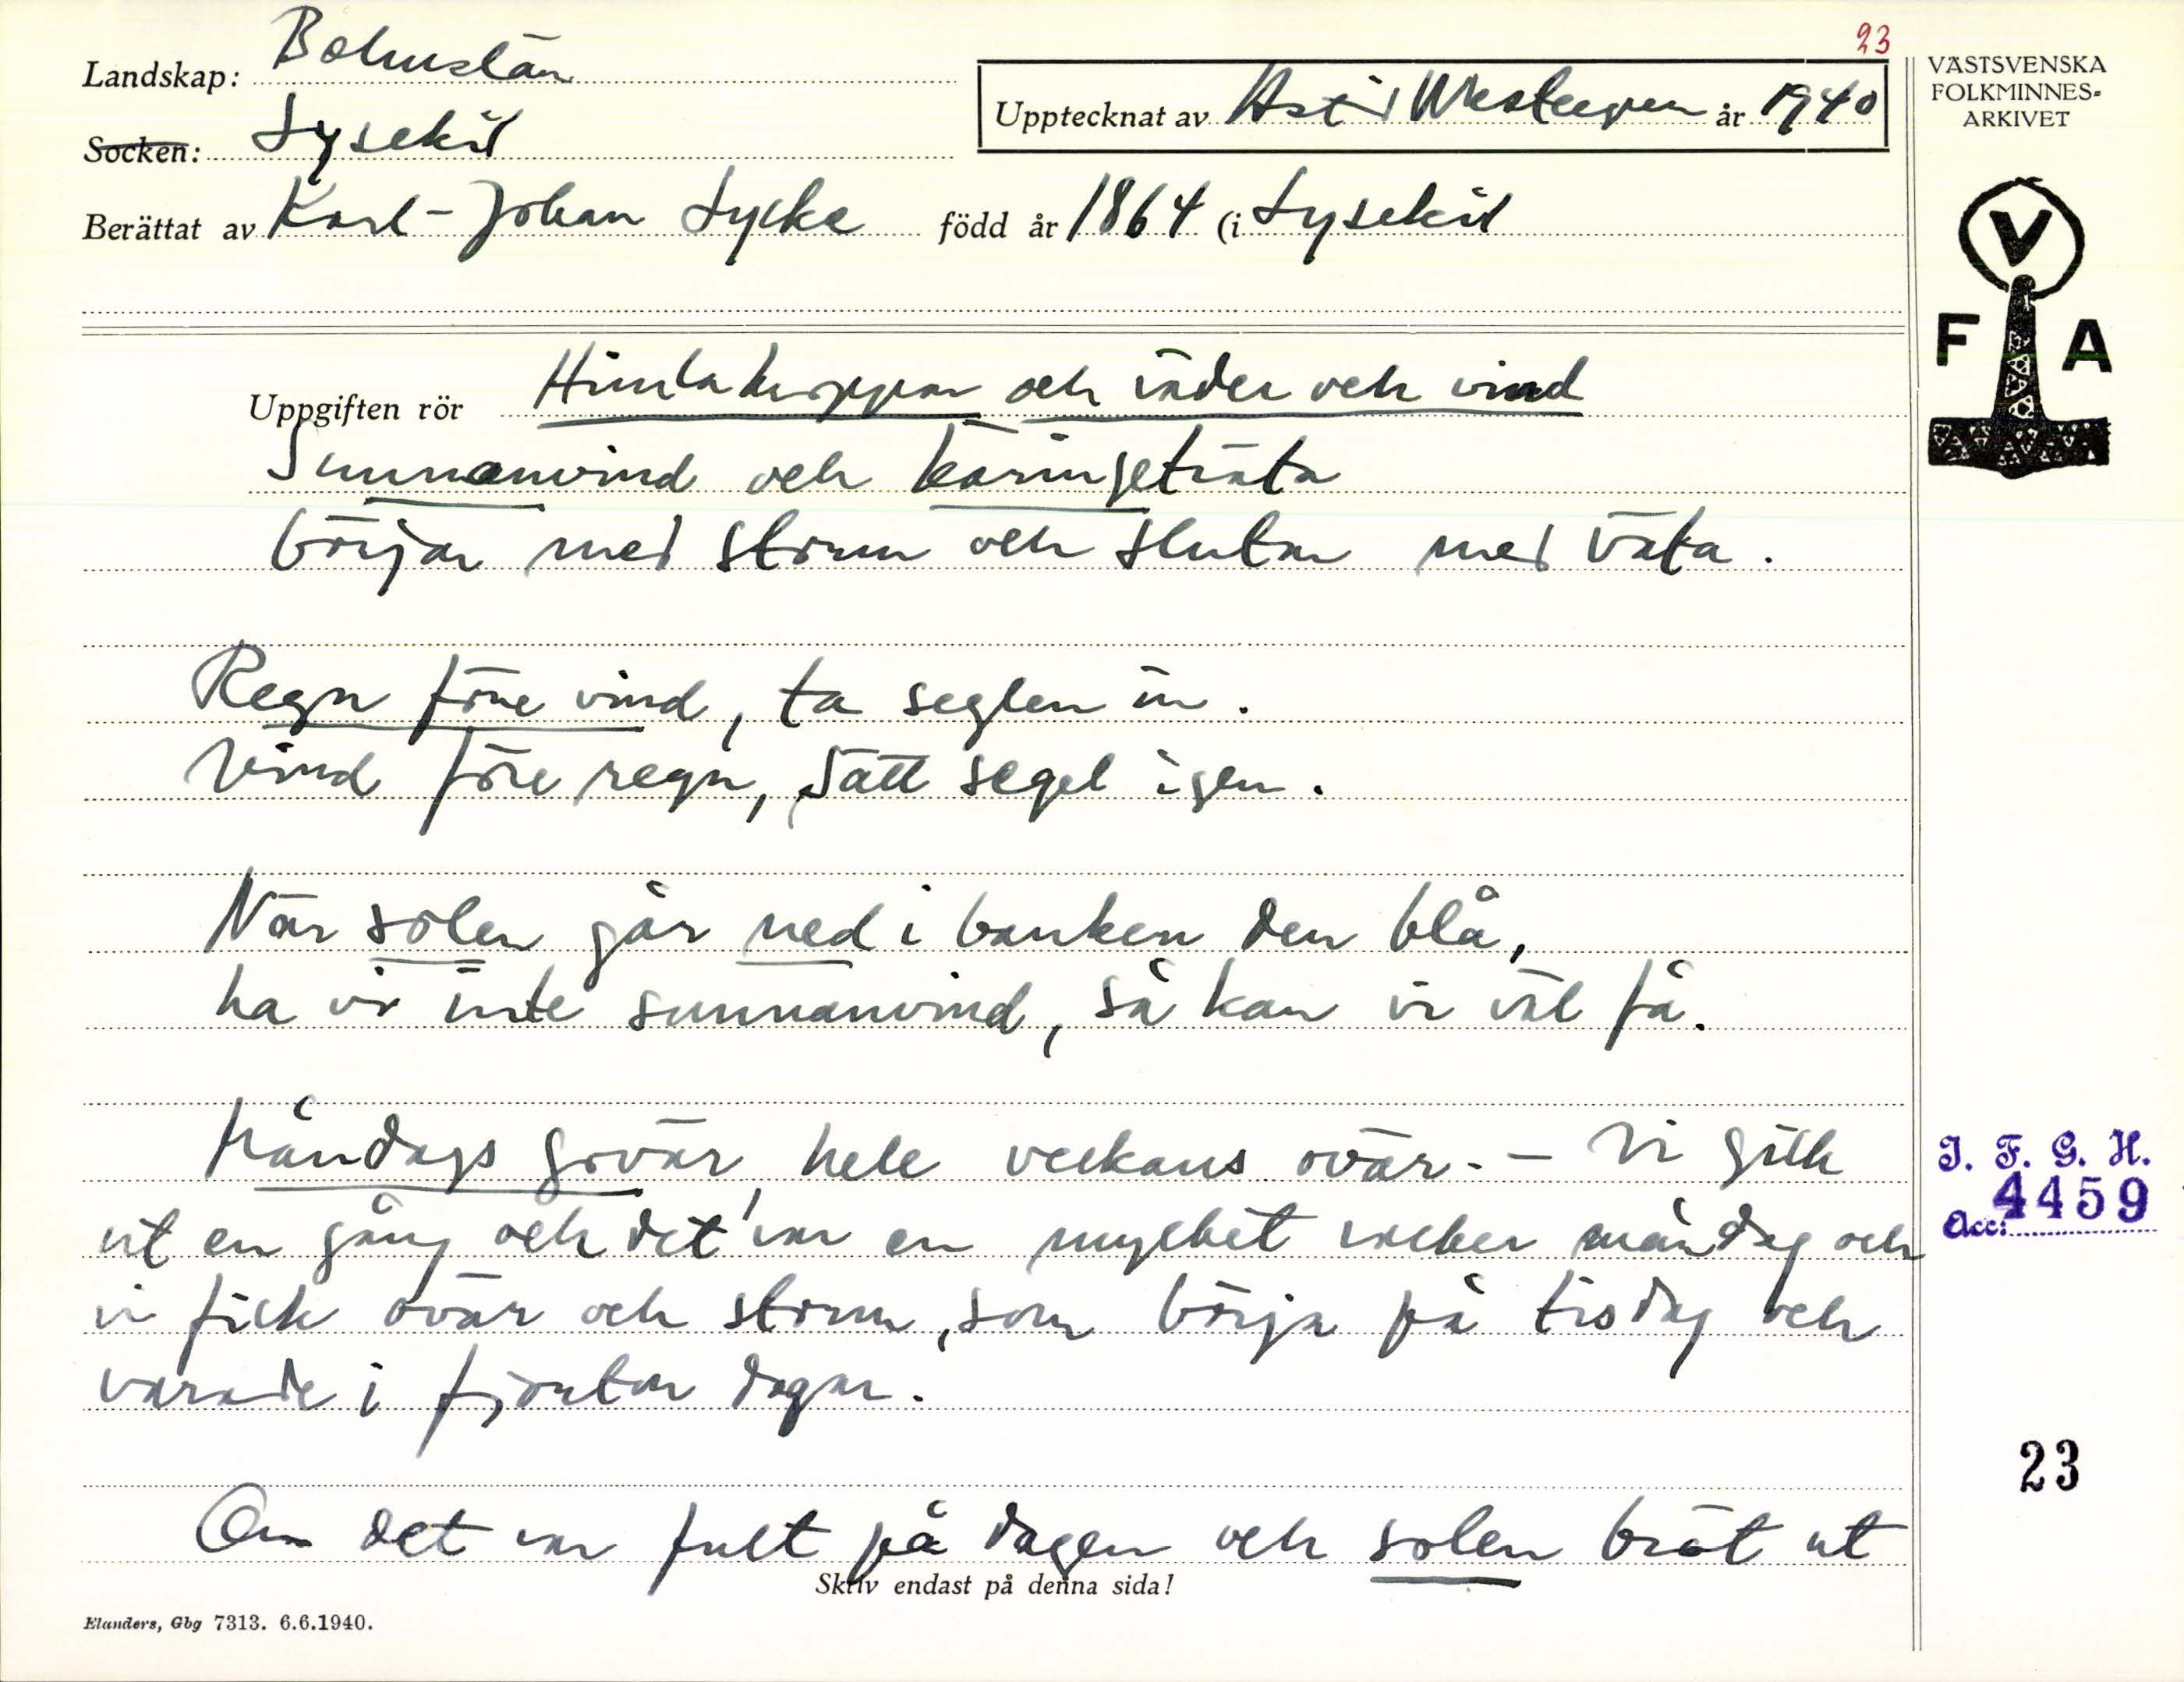 23
Landskap: Bohuslän
Upptecknat av Astrid Westergren år 1940
Socken: Lysekil
Berättat av Karl-Johan Lycke född år 1864 (i Lysekil
VÄSTSVENSKA
FOLKMINNES-
ARKIVET
V
F A
Uppgiften rör Himlakroppar och väder och vind
Sunnanvind och käringeträta
börjar med storm och slutar med väta.
Regn före vind, ta seglen in.
Vind före regn, sätt segel igen.
När solen går ned i banken den blå,
ha vi inte sunnanvind, så kan vi väl få.
Måndags govär, hele veckans ovär. - Vi gick
ut en gång och det var en mycket vacker måndag och
vi fick ovär och storm, som börja på tisdag och
varade i fjorton dagar.
Om det var fult på dagen och solen bröt ut
Skriv endast på denna sida!
Elanders, Gbg 7313. 6.6.1940.
I. F. G. H.
Acc: 4459
23